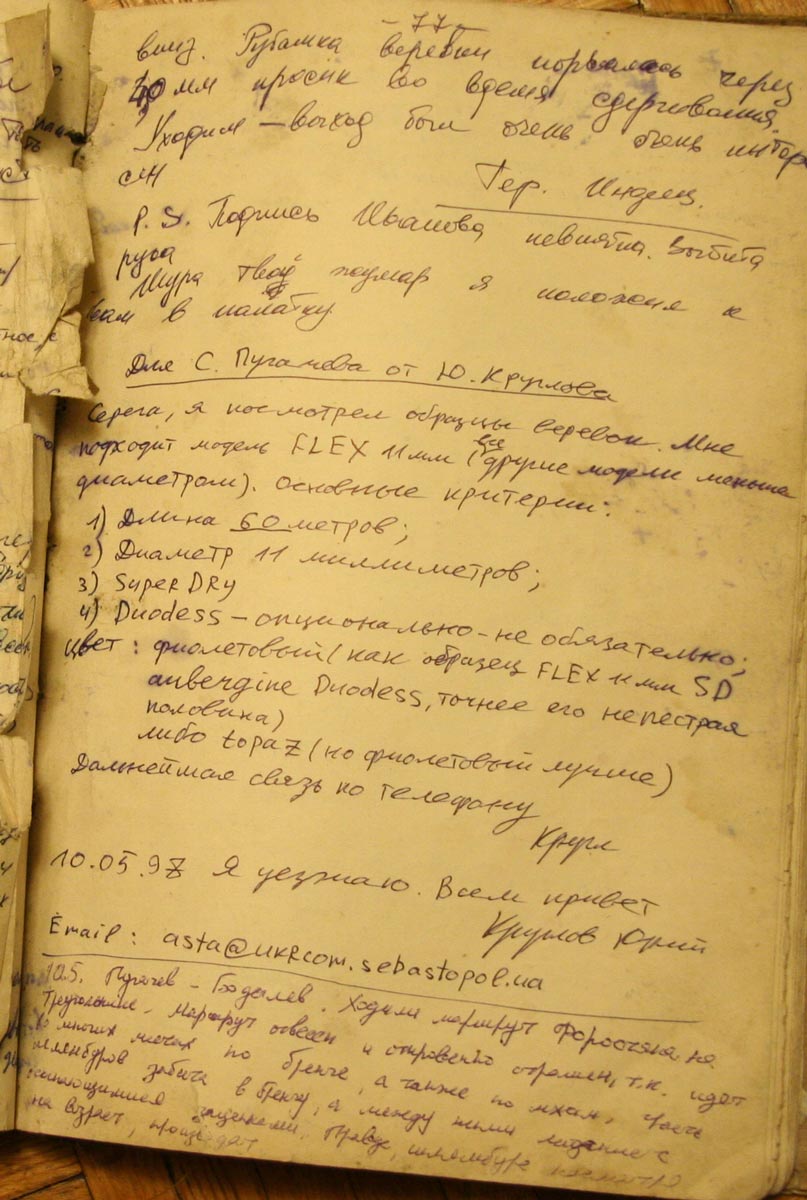 - 77 -
вниз. Рубашка веревки порвалась через
40 мм просик во время сдергивания.
Уходим – выход был очень очень интере
сен
Гер. Индеец.
P.S. Подпись Иванова невнятна. Выбита
рука
Шура твой жумар я положил к
вам в палатку
Для С. Пугачева от Ю. Круглова
Серега, я посмотрел образцы веревок. Мне
подходит модель FLEX 11 мм (все другие модели меньше
диаметром). Основные критерии:
1) Длина 60 метров;
2) Диаметр 11 миллиметров;
3) Super DRY
4) Duodess – опционально – не обязательно;
Цвет: фиолетовый (как образец FLEX 11 мм SD
aubergine Duodess, точнее его непестрая
половина)
либо topaz (но фиолетовый лучше)
Дальнейшая связь по телефону
Кругл
10.05.97 Я уезжаю. Всем привет
Круглов Юрий
Email: asta@ukrcom.sebastopol.ua
10.5. Пугачев – Бодылев. Ходили маршрут Форостяна на
Треугольнике. Маршрут отвесен и откровенно страшен, т.к. идет
во многих местах по бренче, а также по мхам, часть
шлямбуров забита в бренчу, а между ними лазание с
зацепками. Правда, шлямбура
на возраст, производят